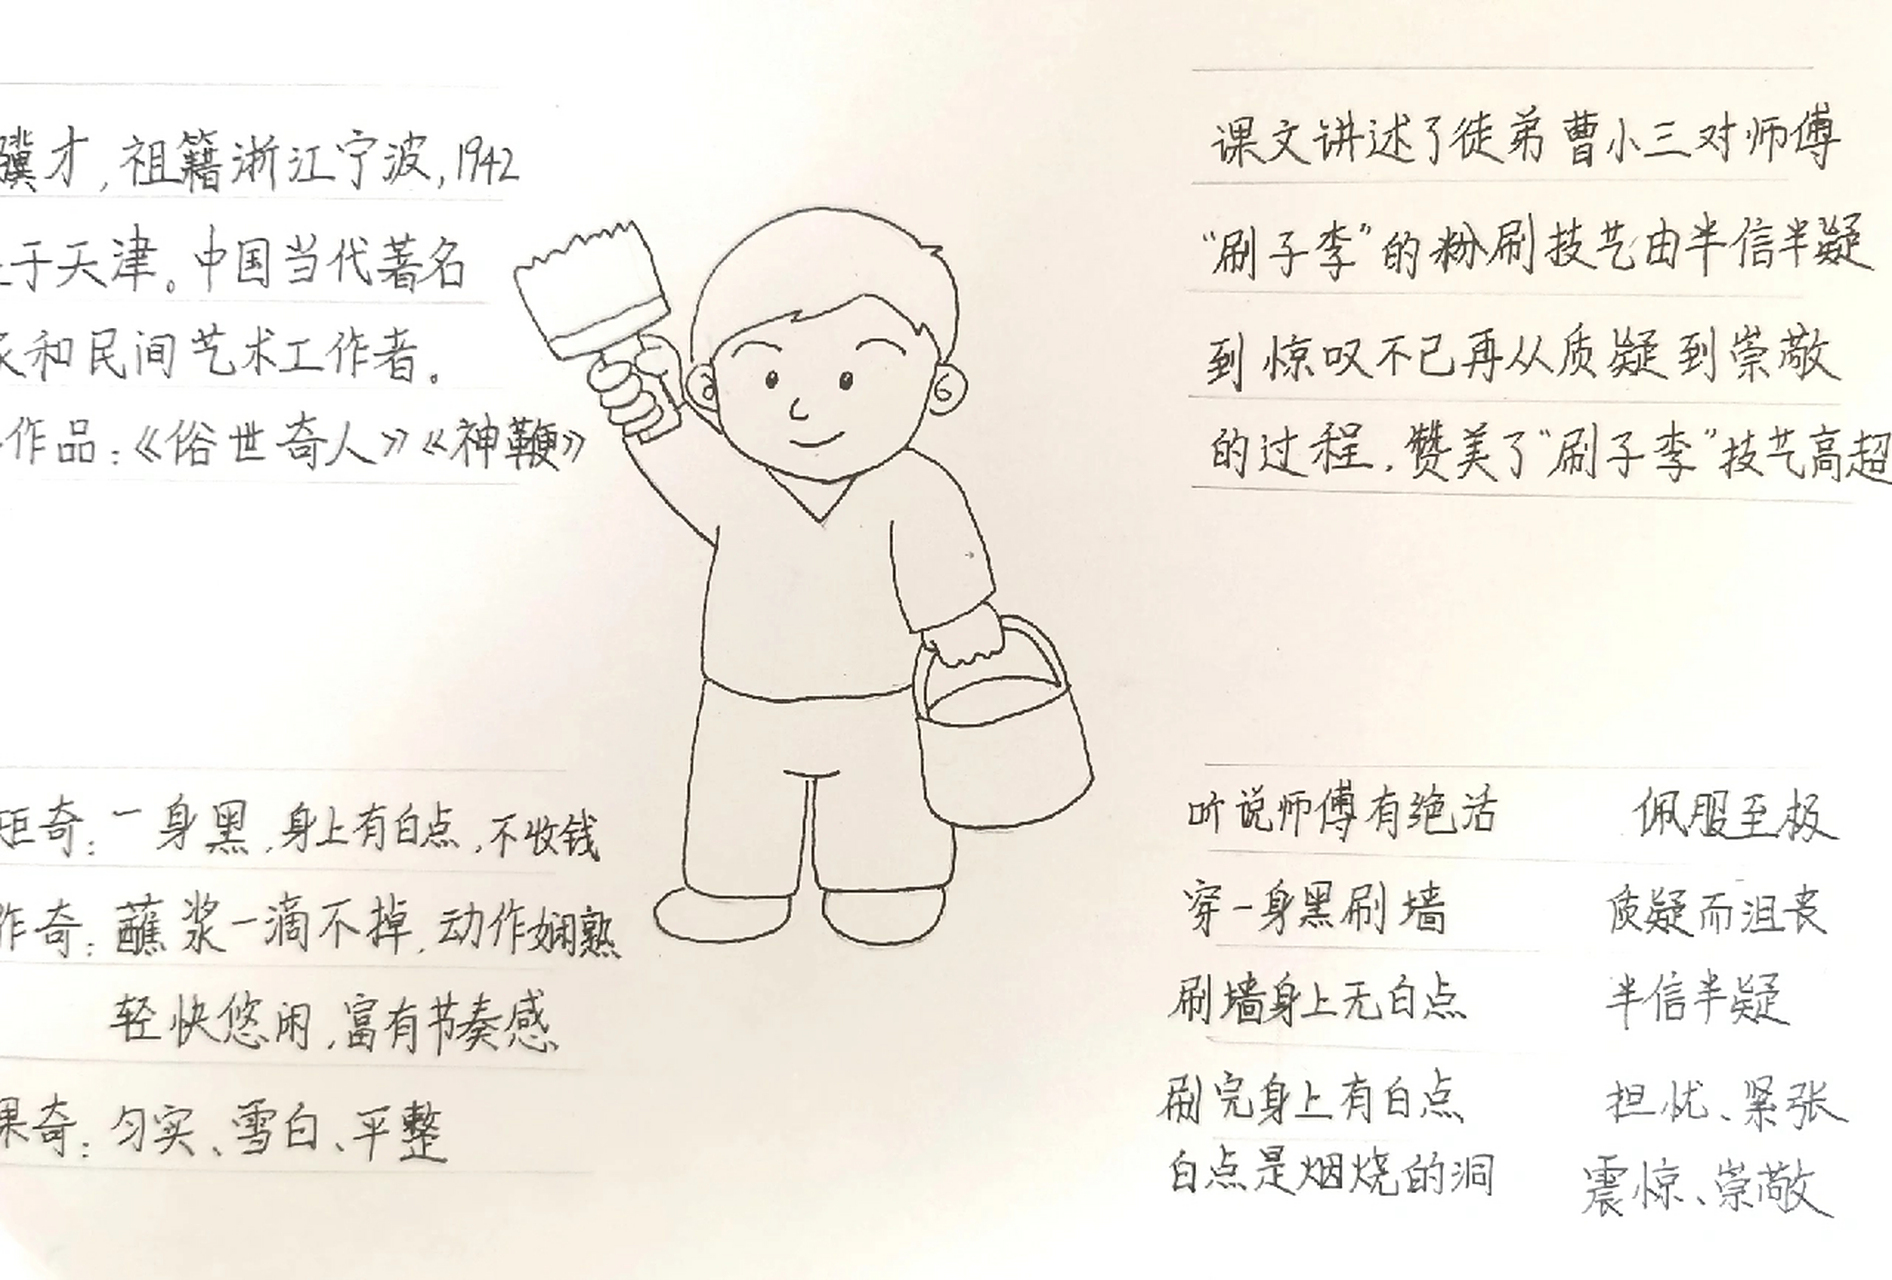 骥才,祖籍浙江宁波,1942
于天津。中国当代著名
和民间艺术工作者。
作品:《俗世奇人》《神鞭》
课文讲述了徒弟曹小三对师傅
“刷子李”的粉刷技艺由半信半疑
到惊叹不已再从质疑到崇敬
的过程,赞美了“刷子李”技艺高超
奇:一身黑,身上有白点,不收钱
作奇:蘸浆一滴不掉,动作娴熟
轻快悠闲,富有节奏感
果奇:匀实、雪白、平整
听说师傅有绝活 佩服至极
穿一身黑刷墙 质疑而沮丧
刷墙身上无白点 半信半疑
刷完身上有白点 担忧、紧张
白点是烟烧的洞 震惊、崇敬